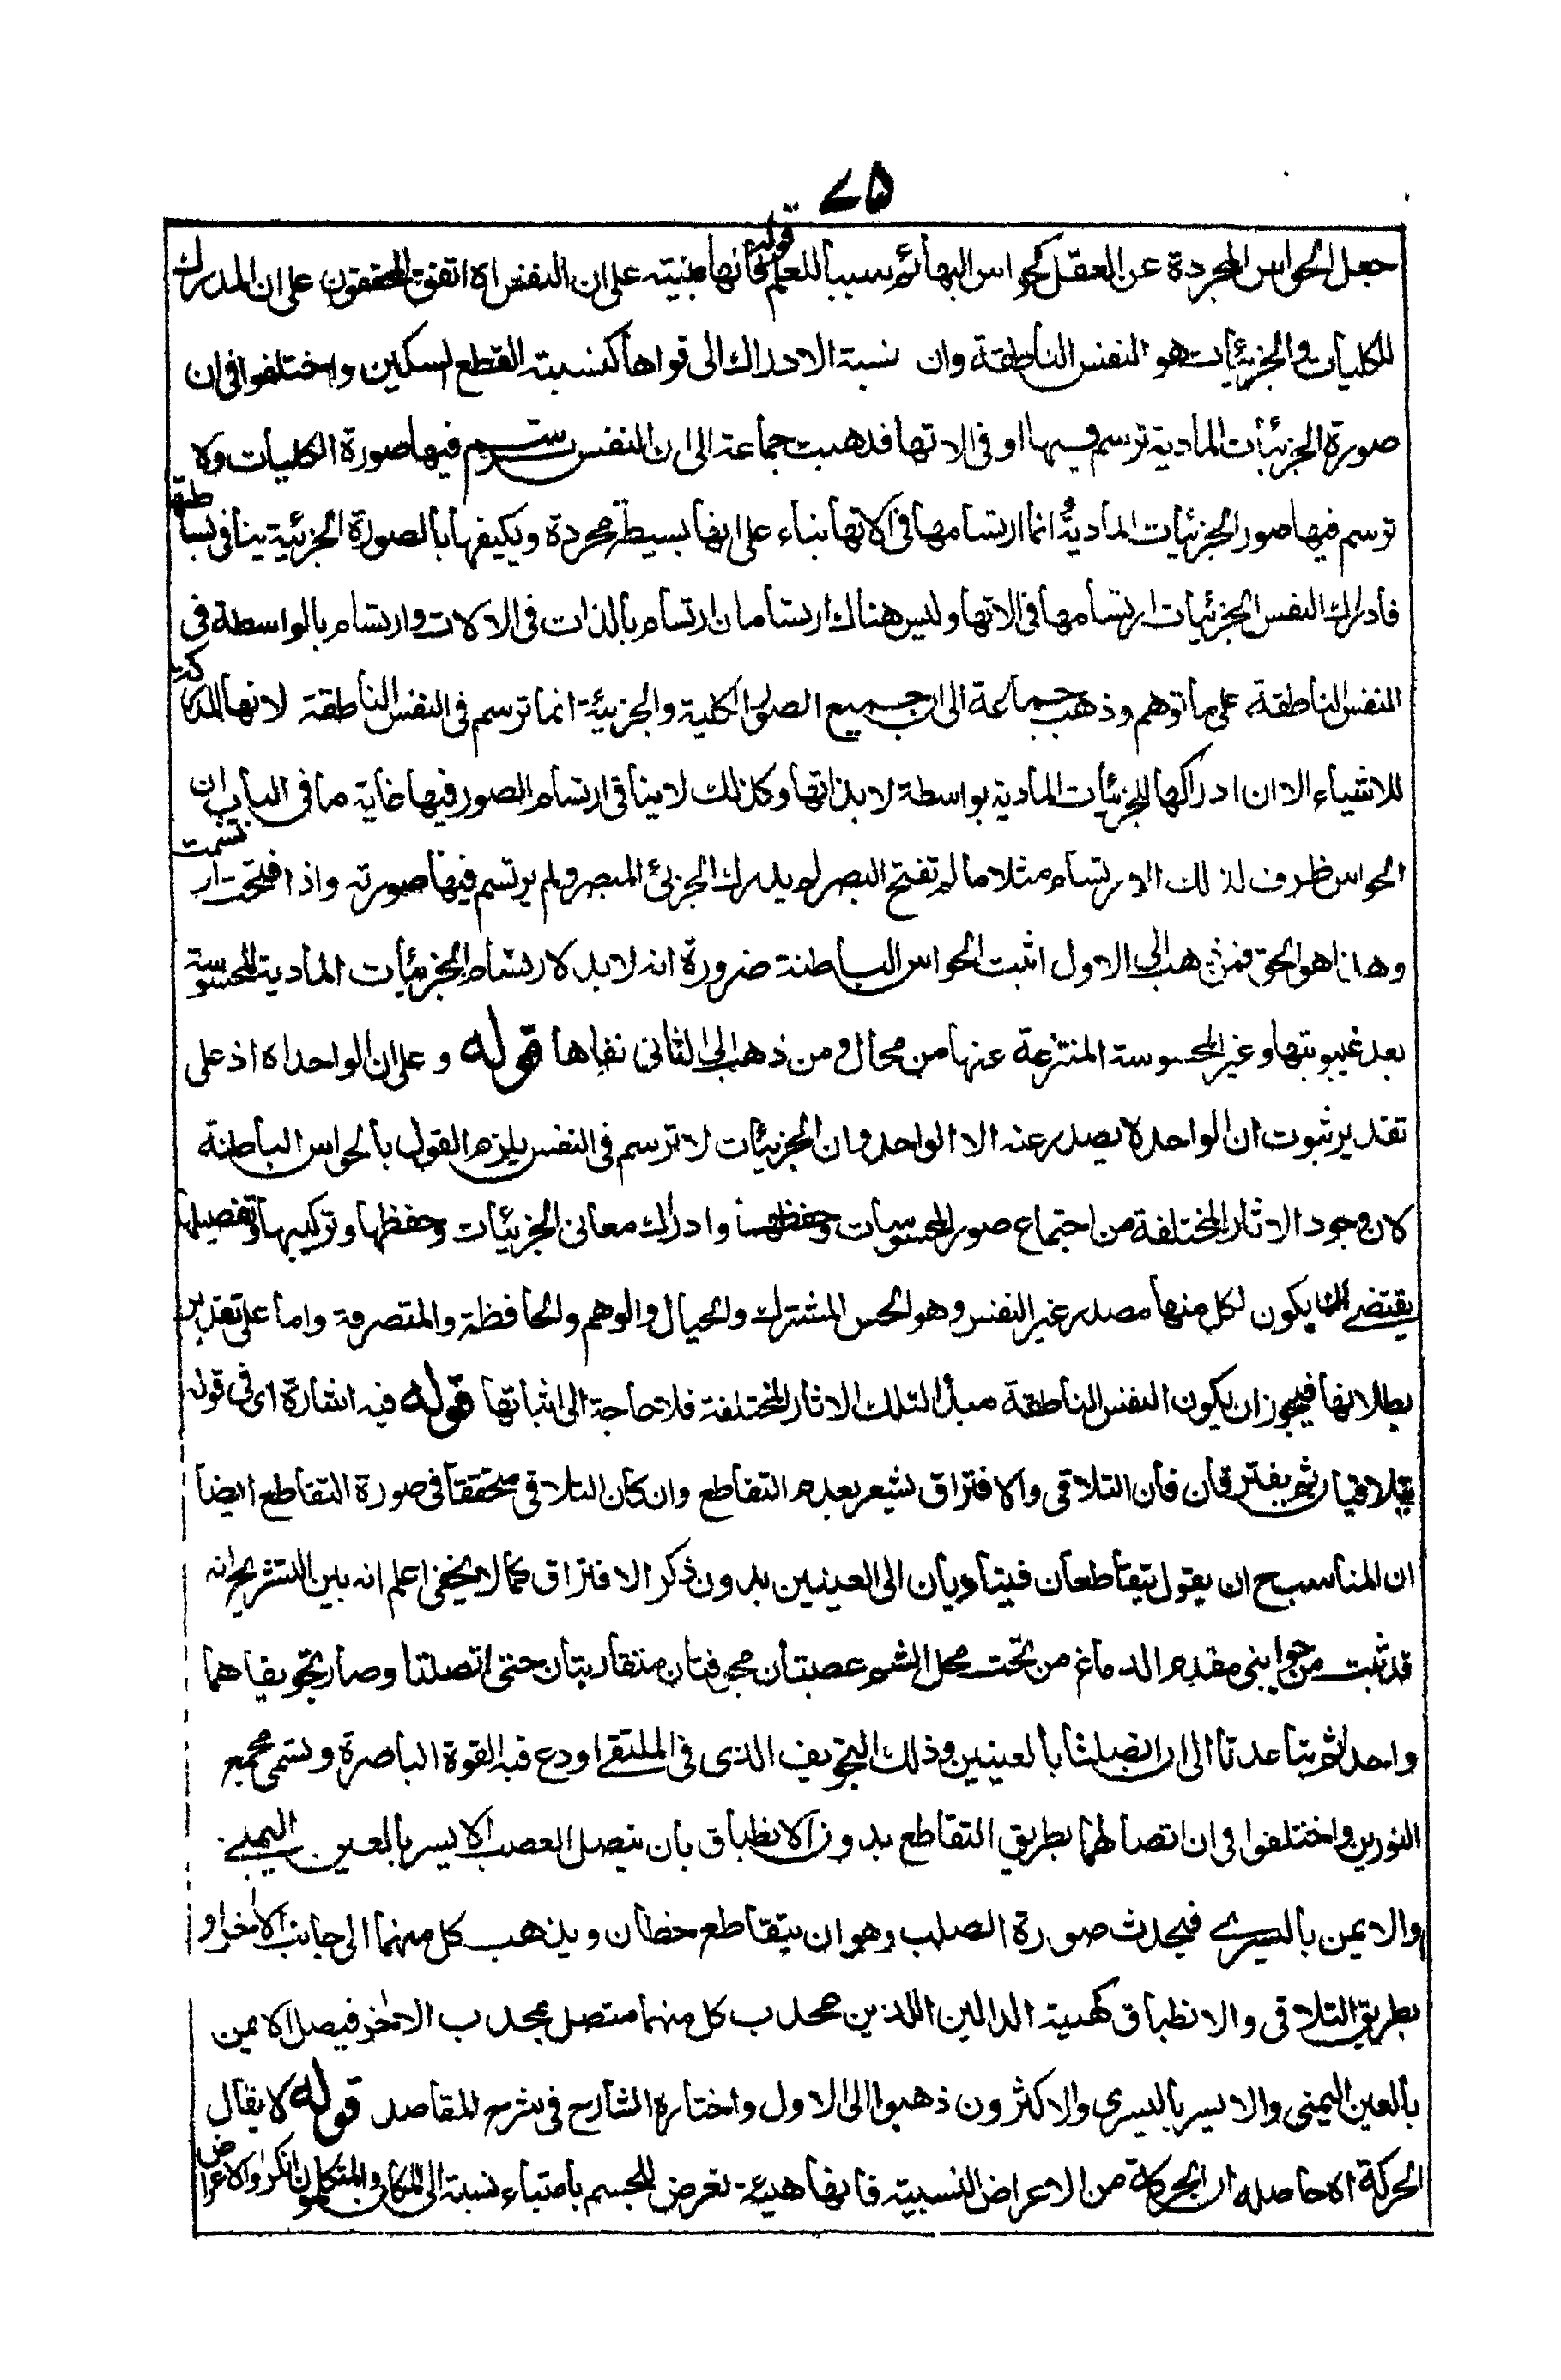 ٧٥
جعل الحواس المجردة عن العقل كحواس البهائم سببا للعلم قوله فانها مبنية على ان النفس اه اتفق المحققون على ان المدرك
للكليات والجزئيات هو النفس الناطقة وان نسبة الادراك الى قواها كنسبة القطع لسكين واختلفوا في ان
صورة الجزئيات المادية ترسم فيها او في الاتها فذهبت جماعة الى ان النفس ترسم فيها صورة الكليات ولا
ترسم فيها صور الجزئيات المادية وانما ارتسامها في الاتها بناء على انها بسيطة مجردة وتكيفها بالصورة الجزئية ينافي بساطتها
فادراك النفس الجزئيات ارتسامها في الاتها وليس هناك ارتسامان ارتسام بالذات في الالات وارتسام بالواسطة في
النفس الناطقة على ما توهم وذهب جماعة الى ان جميع الصور الكلية والجزئية انما ترسم في النفس الناطقة لانها المدركة
للاشياء الا ان ادراكها للجزئيات المادية بواسطة لا بذاتها وكذلك لا ينافي ارتسام الصور فيها غاية ما في الباب ان
الحواس ظرف لذلك الارتسام مثلا ما لم تفتح البصر لم يدرك الجزئي المبصر ولم يرتسم فيها صورته واذا فتحت ارتسمت
وهذا هو الحق فمن ذهب الى الاول اثبت الحواس الباطنة ضرورة انه لابد لارتسام الجزئيات المادية المحسوسة
بعد غيبوبتها وغير المحسوسة المنتزعة عنها من محال ومن ذهب الى الثاني نفاها قوله و على ان الواحد اه اذ على
تقدير ثبوت ان الواحد لا يصدر عنه الا الواحد وان الجزئيات لا ترسم في النفس يلزم القول بالحواس الباطنة
لان وجود الاثار المختلفة من اجتماع صور المحسوسات وحفظها وادراك معاني الجزئيات وحفظها وتركيبها وتفصيلها
يقتضي ان يكون لكل منها مصدر غير النفس وهو الحس المشترك والخيال والوهم والحافظة والمتصرفة واما على تقدير
بطلانها فيجوز ان يكون النفس الناطقة مبدأ لتلك الاثار المختلفة فلا حاجة الى اثباتها قوله فيه اشارة اى في قوله
يتلاقيان ثم يفترقان فان التلاقي والافتراق يشعر بعدم التقاطع وان كان التلاقي متحققا في صورة التقاطع ايضا
ان المناسب ح ان يقول يتقاطعان فيتأديان الى العينين بدون ذكر الافتراق كما لا يخفى اعلم انه بين التشريح انه
قد ثبت من جوانبي مقدم الدماغ من تحت محل الشم عصبتان مجوفتان متقاربتان حتى اتصلتا وصار تجويفاهما
واحدا ثم تباعدتا الى ان اتصلتا بالعينين وذلك التجويف الذى في الملتقى اودع فيه القوة الباصرة وتسمى مجمع
النورين واختلفوا في ان اتصالهما بطريق التقاطع بدون الانطباق بان يتصل العصب الايسر بالعين اليمنى
والايمن باليسرى فيحدث صورة الصليب وهو ان يتقاطع خطان ويذهب كل منهما الى جانب الاخر او
بطريق التلاقي والانطباق كهيئة الدالين اللذين محدب كل منهما متصل بمحدب الاخر فيصل الايمن
بالعين اليمنى والايسر باليسرى والاكثرون ذهبوا الى الاول واختاره الشارح في شرح المقاصد قوله لا يقال
الحركة اه حاصله ان الحركة من الاعراض النسبية فانها هيئة تعرض للجسم باعتبار نسبة الى المكان والمتكلمون انكروا الاعراض